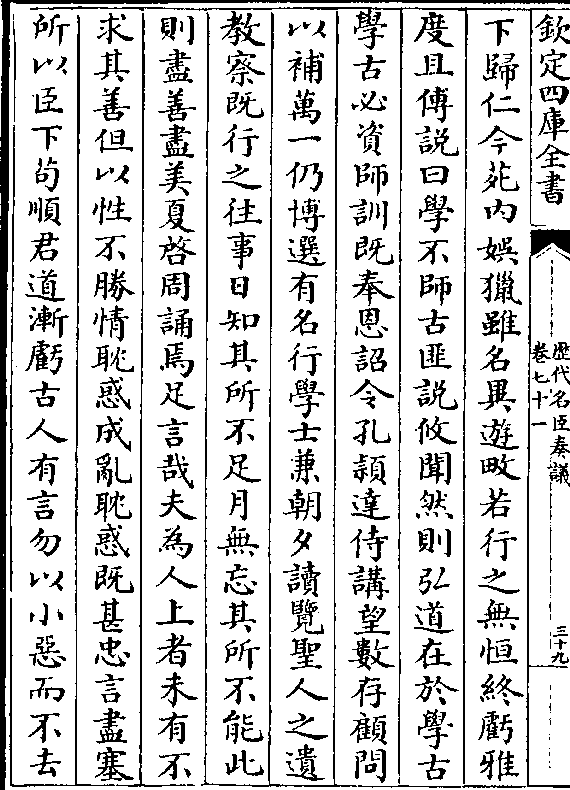 欽定四庫全書
歷代名臣奏議
卷七十一
三十九
下歸仁今苑内娛獵雖名異遊畋若行之無恒終虧雅
度且傅説曰學不師古匪説攸聞然則弘道在於學古
學古必資師訓既奉恩詔令孔頴達侍講望數存顧問
以補萬一仍博選有名行學士兼朝夕讀覽聖人之遺
教察既行之往事日知其所不足月無忘其所不能此
則盡善盡美夏啓周誦焉足言哉夫為人上者未有不
求其善但以性不勝情耽惑成亂耽惑既甚忠言盡塞
所以臣下苟順君道漸虧古人有言勿以小惡而不去